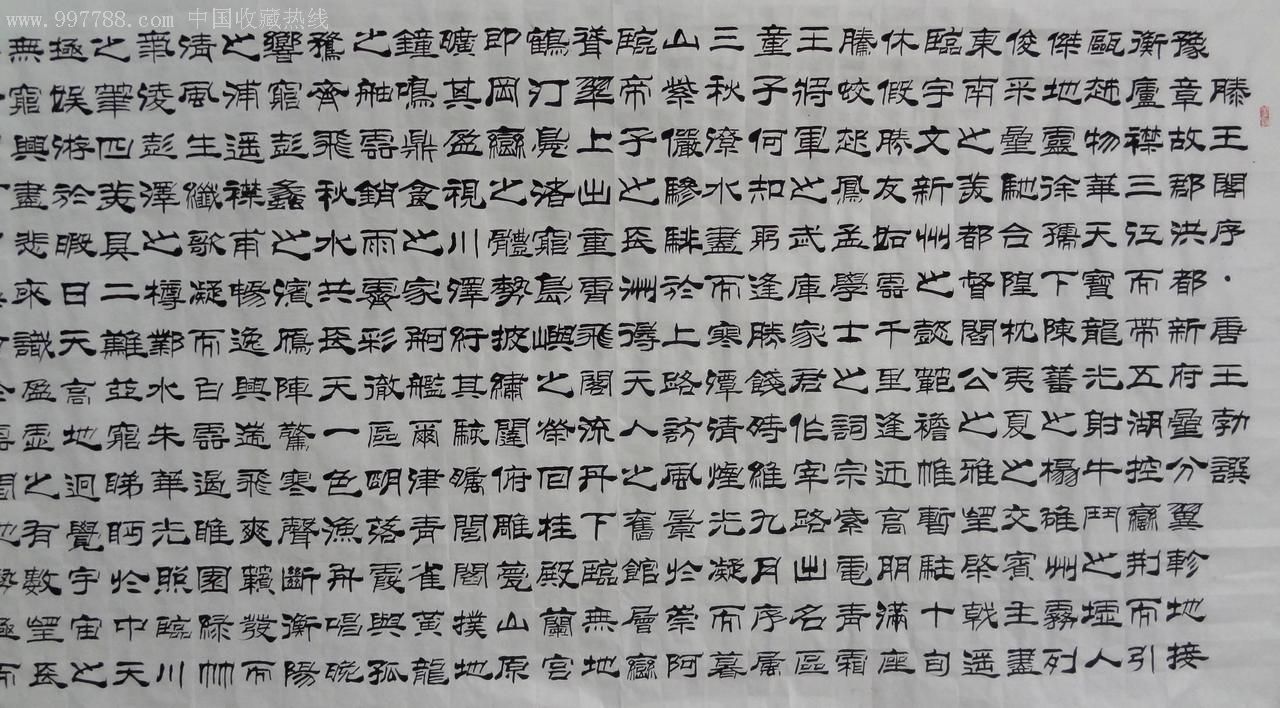 www.997788.com 中国收藏热线
滕王閣序·唐王勃譔
豫章故郡洪都新府曡分翼軫地接
衡廬襟三江而帶五湖控巒荊而引
甌越物華天寶龍光射牛鬥之墟人
傑地靈徐孺下陳蕃之榻雄州霧列
俊采曡馳台隍枕夷夏之交賓主盡
東南之羙都督閻公之雅望棨戟遥
臨宇文新州之懿範襜帷暫駐十旬
休假勝友如雲千里逢迎高朋滿座
騰蛟起鳳孟學士之詞宗紫電青霜
王將軍之武庫家君作宰路出名區
童子何知躬逢勝餞時維九月序属
三秋潦水盡而寒潭清煙光凝而暮
山紫儼驂騑於上路訪風景於崇阿
臨帝子之長洲得天人之舊館層巒
聳翠上出重霄飛閣流丹下臨無地
鶴汀鳧渚窮島嶼之縈回桂殿蘭宮
即岡巒之體勢披繡闥俯雕甍山原
曠其盈視川澤紆其駭矚閭閻撲地
鐘鳴鼎食之家舸艦爾津青雀黃龍
之舳雲銷雨霽彩徹區明落霞與孤
鶩齊飛秋水共長天一色漁舟唱晚
響窮彭蠡之濱雁陣驚寒聲斷衡陽
之浦遥襟甫暢逸興遄飛爽籟發而
清風生纖歌凝而白雲遏睢園綠竹
氣淩彭澤之樽鄴水朱華光照臨川
之筆四羙具二難並窮睇眄於中天
極娛游於暇日天高地迥覺宇宙之
無窮興盡悲來識盈虛之有數望長